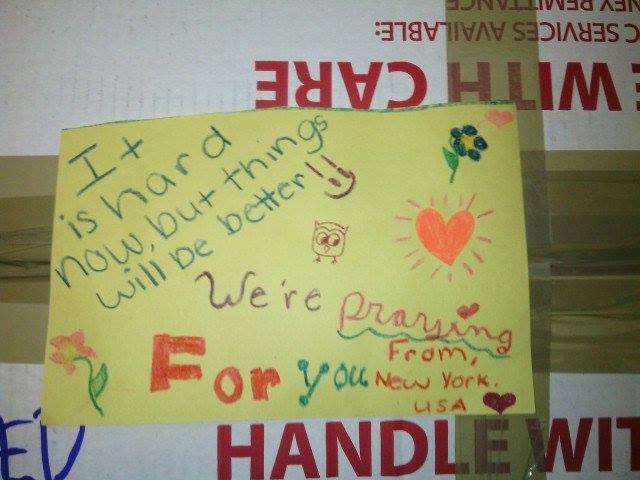 NEY REMITTANCE
C SERVICES AVAILABLE:
E WITH CARE
It
is hard
now, but things
will be better!!
We're Praying
For you
From,
New York.
USA
ED
HANDLE WIT